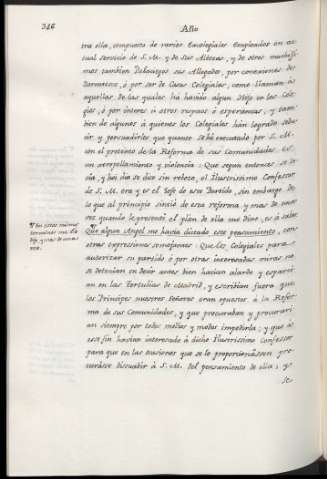 346
Año
tra ella, compuesto de varios Excolegiales Empleados en ac-
tual servicio de S. M. y de sus Altezas, y de otros muchissi-
mos tambien Deboticos sus Allegados, por conexiones de
Parentesco, ó por ser de Casas Colegiales, como llaman à
aquellas, de las quales ha havido algun Hijo en los Cole-
gios, ó por interes à otros respetos ó esperanzas, y tam-
bien de algunos à quienes los Colegiales han logrado sedu-
cir, y persuadirles que quanto se há executado por S. M.
en el proyecto de la Reforma de sus Comunidades, es
un atropellamiento y violencia: Que segun entonces se de-
cia, y hoi dia se dice sin rebozo, el Ilustrissimo Confessor
de S. M. era y es el Gefe de este Partido, sin embargo de
lo que al principio sintió de esta reforma, y mas de una
vez quando le presenté el plan de ella me dixo, es à saber
Que algun Angel me havia dictado este pensamiento, con
otras expressiones semejantes: Que los Colegiales para
autorizar su partido ó por otras interesadas miras no
se detenian en decir antes bien hacian alarde y esparci-
an en las Tertulias de Madrid, y escribian fuera que
los Principes nuestros señores eran opuestos à la Refor-
ma de sus Comunidades, y que procuraban y procurari-
an siempre por todos medios y modos impedirla; y que à
este fin havian interesado à dicho Ilustrissimo Confessor
para que en las ocasiones que se le proporcionassen pro-
curasse disuadir à S. M. del pensamiento de ella; y
se
En estos mismos
terminos me dixo, y mas de una
vez.